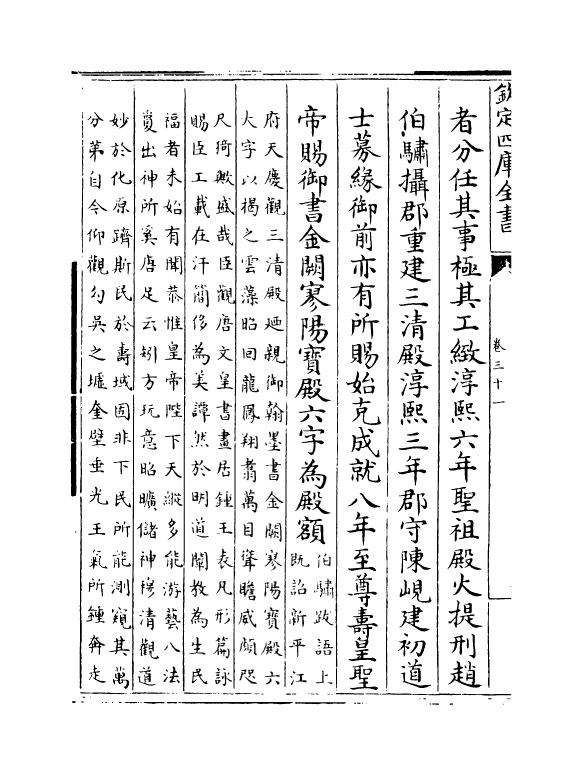 欽定四庫全書
卷三十一
者分任其事極其工緻淳熙六年聖祖殿火提刑趙
伯驌攝郡重建三清殿淳熙三年郡守陳峴建初道
士募緣御前亦有所賜始克成就八年至尊壽皇聖
帝賜御書金闕寥陽寶殿六字為殿額
伯驌跋語上
既詔新平江
府天慶觀三清殿廼親御翰墨書金闕寥陽寶殿六
大字以揭之雲藻昭回龍鳳翔翥萬目聳瞻威顔咫
尺猗歟盛哉臣觀唐文皇書畫居鍾王表凡形篇詠
賜臣工載在汗簡侈為美譚然於明道闡教為生民
福者未始有聞恭惟皇帝陛下天縱多能游藝八法
夐出神所奚唐足云矧方玩意昭曠儲神穆清觀道
妙於化原躋斯民於壽域固非下民所能測窺其萬
分第自今仰觀勾吳之墟奎壁垂光王氣所鍾奔走